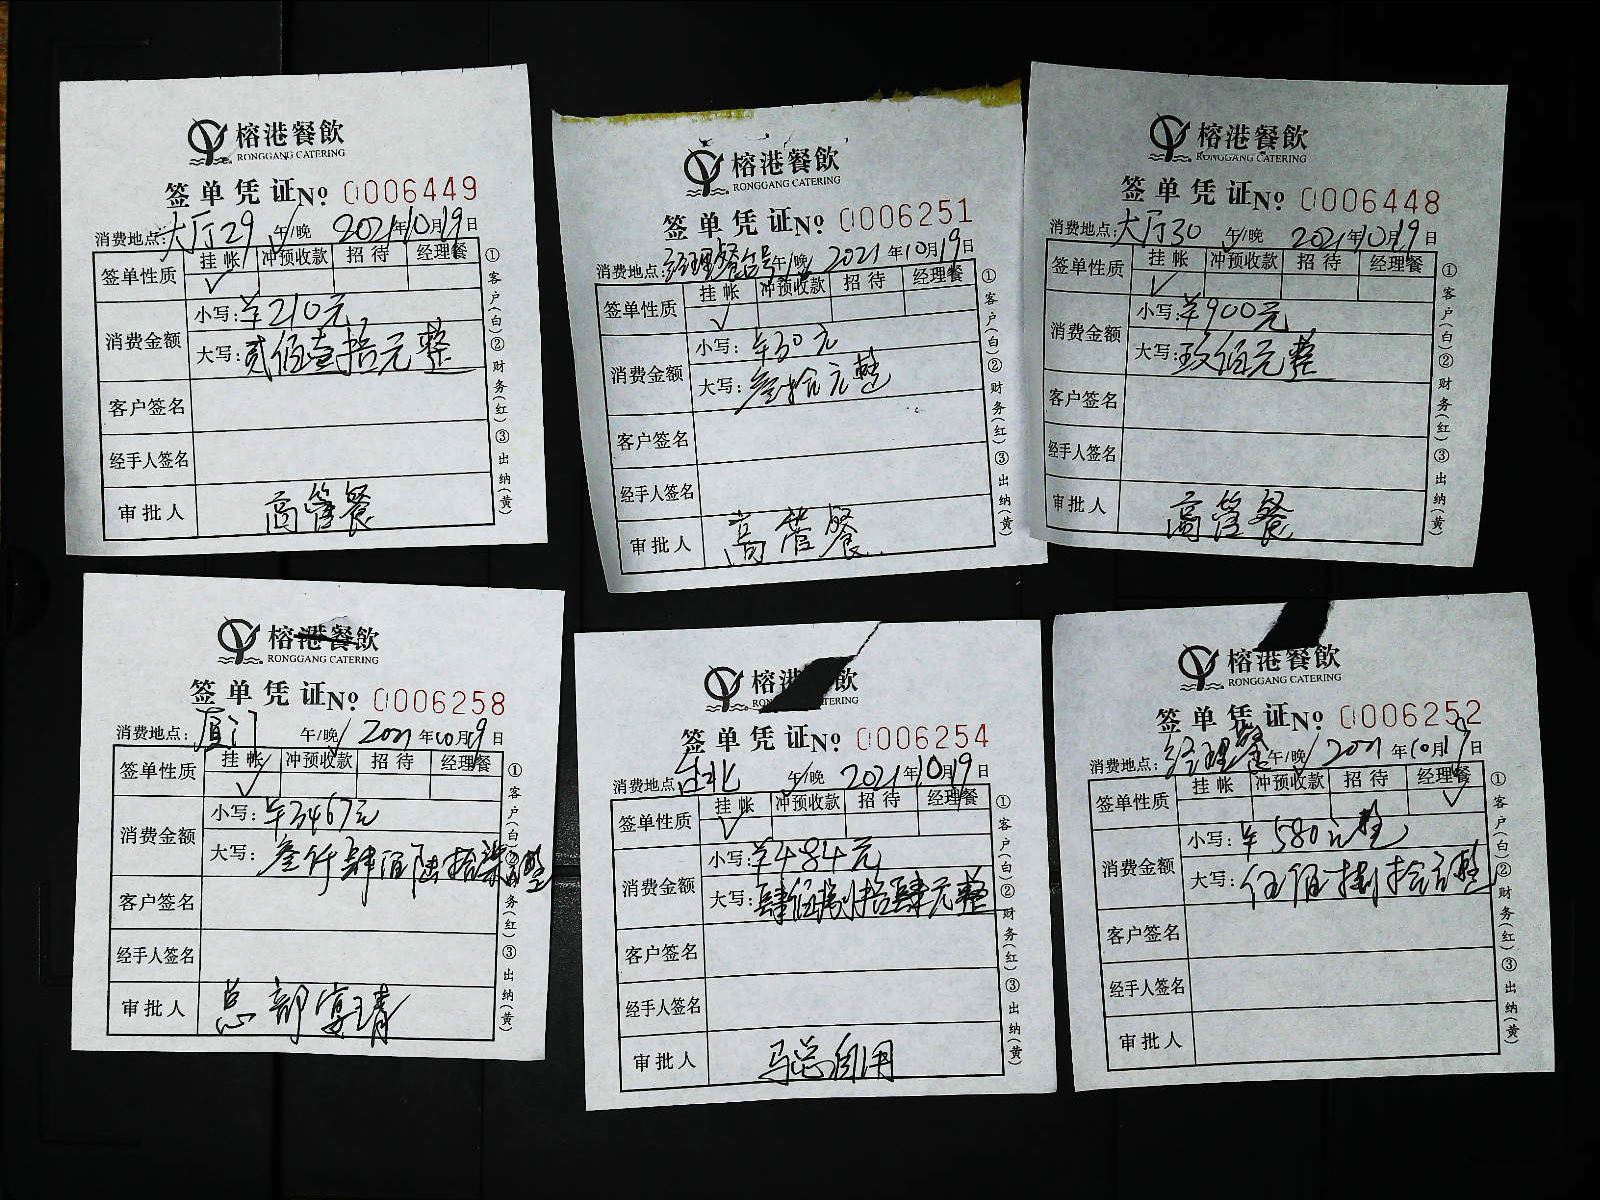 榕港餐飲
RONGGANG CATERING
签单凭证 No 0006449
消费地点：大厅29 午/晚 2021年10月19日
签单性质 挂帐 冲预收款 招待 经理餐
✓
消费金额 小写：¥210元
大写：贰佰壹拾元整
客户签名
经手人签名
审批人 高管餐
①客户(白)②财务(红)③出纳(黄)
榕港餐飲
RONGGANG CATERING
签单凭证 No 0006251
消费地点：经理餐台号 午/晚 2021年10月19日
签单性质 挂帐 冲预收款 招待 经理餐
✓
消费金额 小写：¥30元
大写：叁拾元整
客户签名
经手人签名
审批人 高管餐
①客户(白)②财务(红)③出纳(黄)
榕港餐飲
RONGGANG CATERING
签单凭证 No 0006448
消费地点：大厅30 午/晚 2021年10月19日
签单性质 挂帐 冲预收款 招待 经理餐
✓
消费金额 小写：¥900元
大写：玖佰元整
客户签名
经手人签名
审批人 高管餐
①客户(白)②财务(红)③出纳(黄)
榕港餐飲
RONGGANG CATERING
签单凭证 No 0006258
消费地点：厦门 午/晚 2021年10月19日
签单性质 挂帐 冲预收款 招待 经理餐
✓
消费金额 小写：¥3467元
大写：叁仟肆佰陆拾柒元整
客户签名
经手人签名
审批人 总部宴请
①客户(白)②财务(红)③出纳(黄)
榕港餐飲
RONGGANG CATERING
签单凭证 No 0006254
消费地点：台北 午/晚 2021年10月19日
签单性质 挂帐 冲预收款 招待 经理餐
✓
消费金额 小写：¥484元
大写：肆佰捌拾肆元整
客户签名
经手人签名
审批人 马总自用
①客户(白)②财务(红)③出纳(黄)
榕港餐飲
RONGGANG CATERING
签单凭证 No 0006252
消费地点：经理餐 午/晚 2021年10月19日
签单性质 挂帐 冲预收款 招待 经理餐
✓
消费金额 小写：¥580元整
大写：伍佰捌拾元整
客户签名
经手人签名
审批人
①客户(白)②财务(红)③出纳(黄)